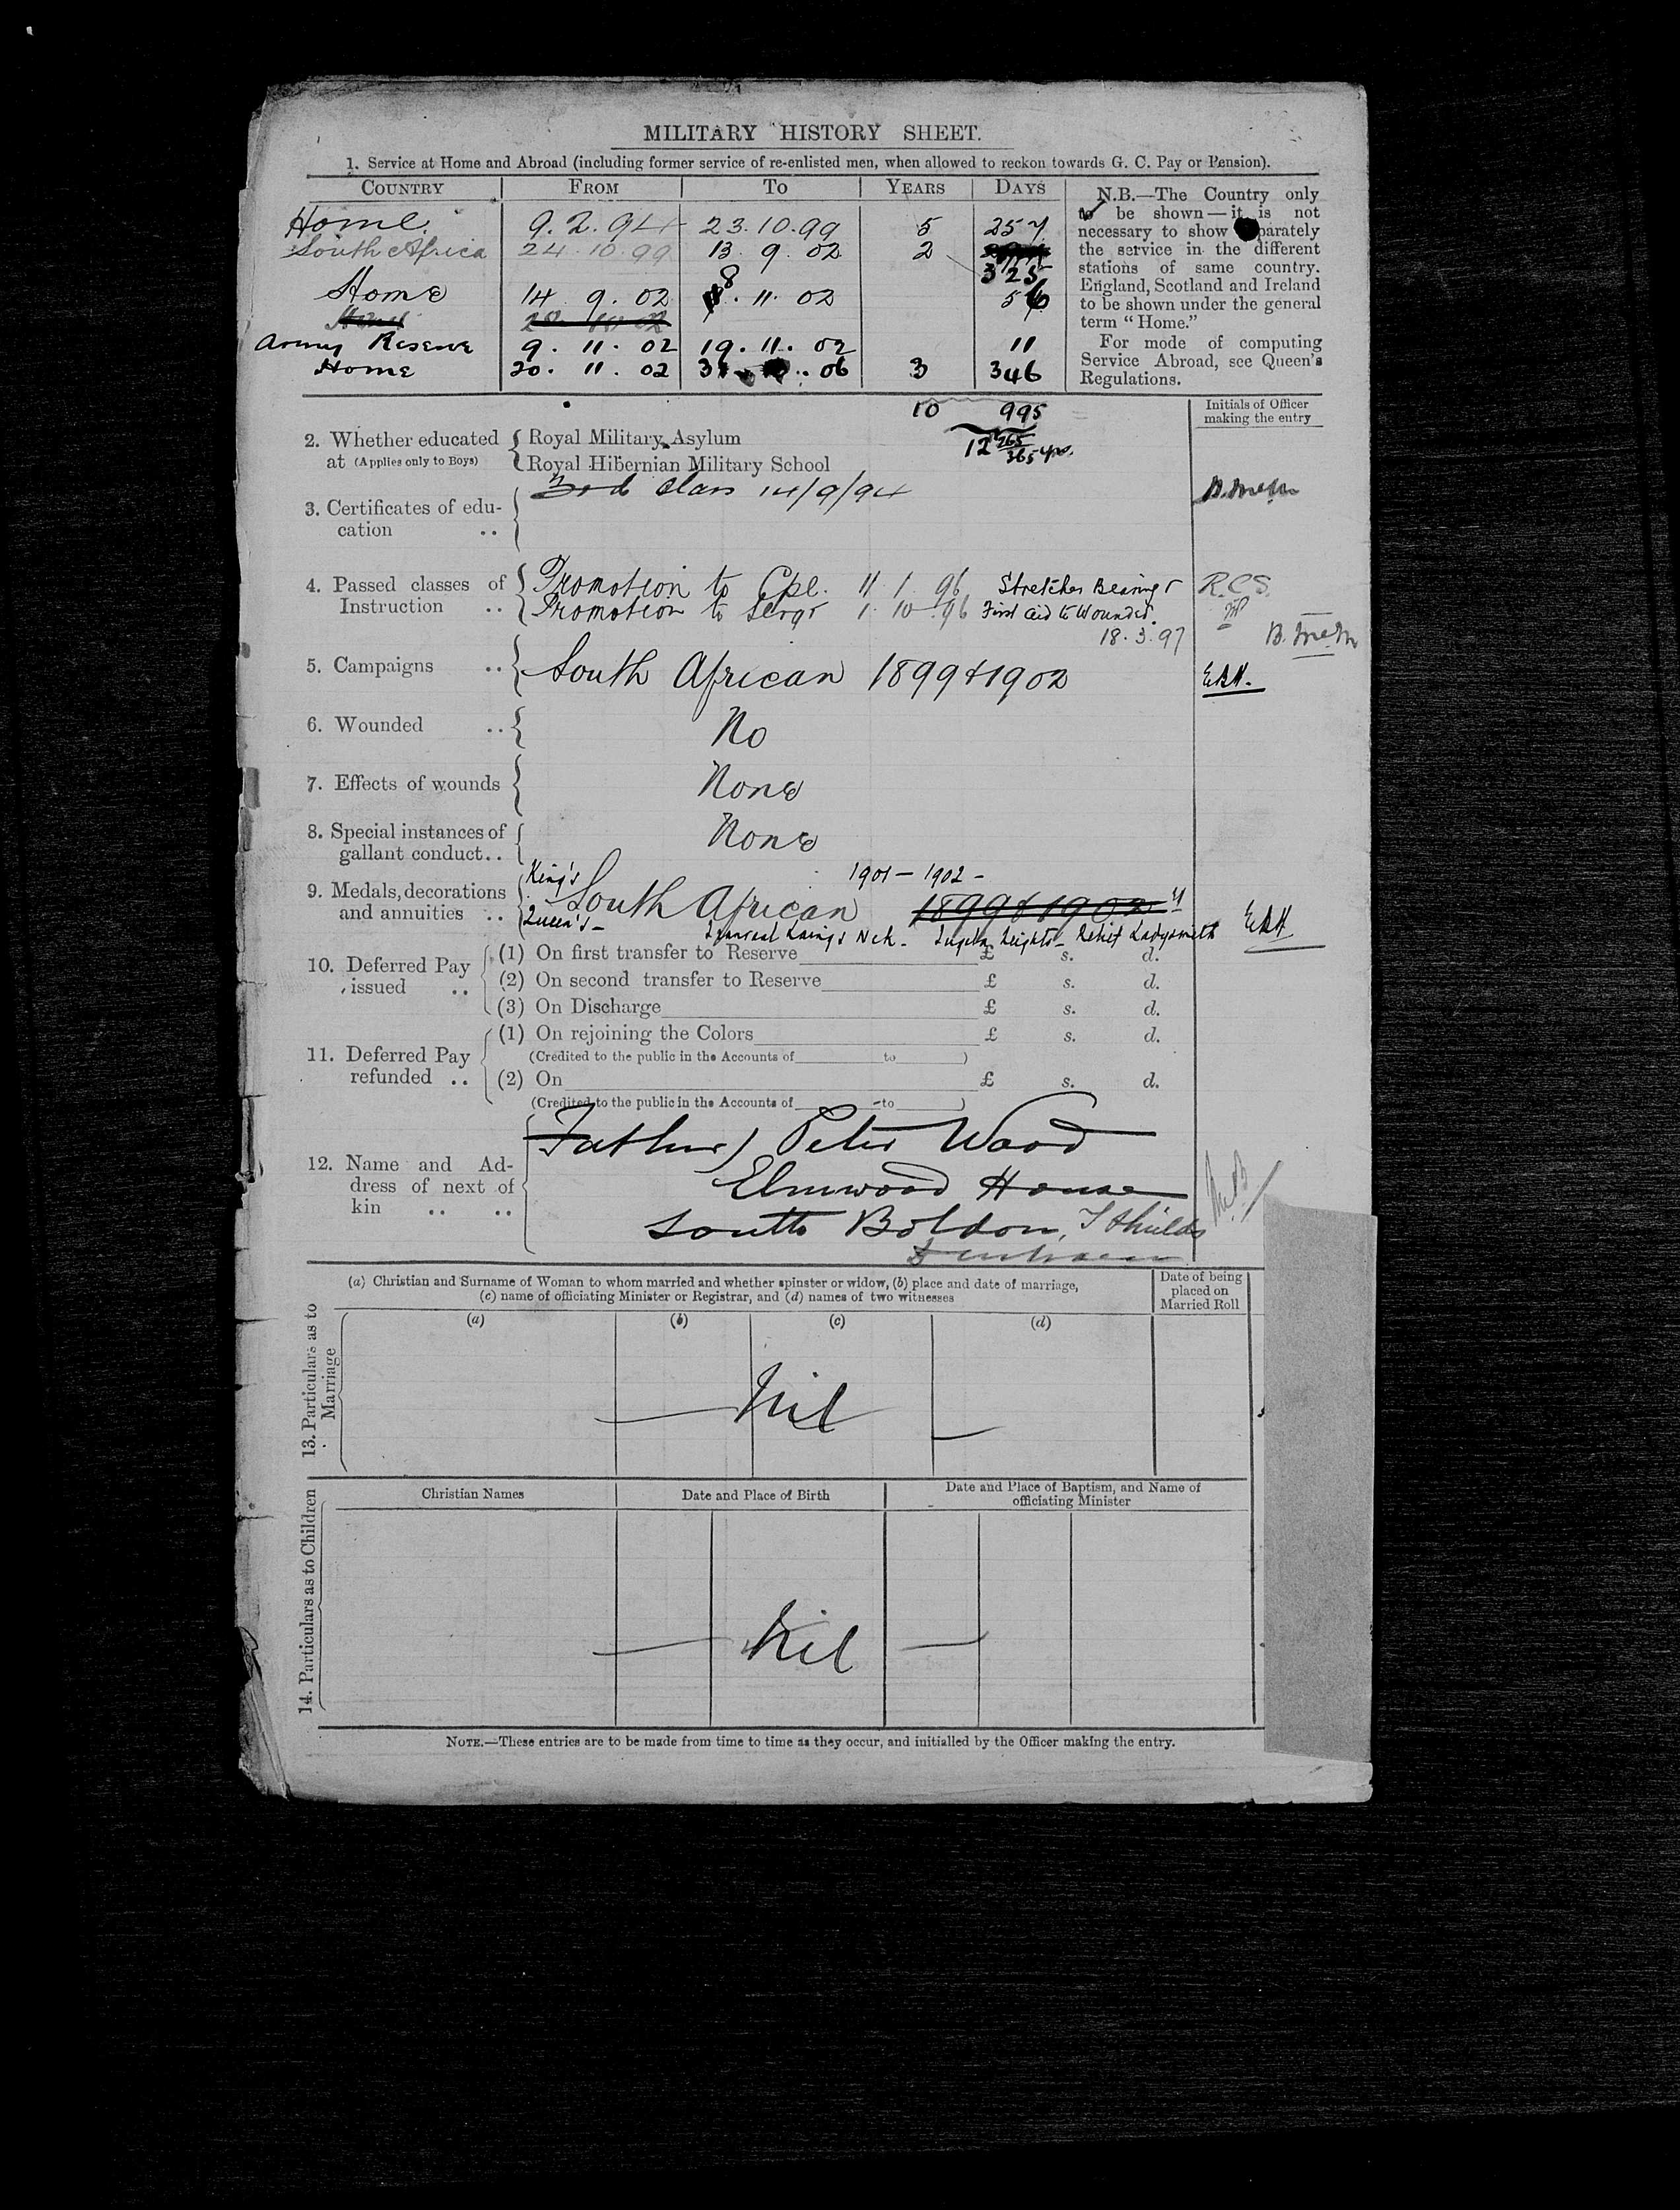 MILITARY HISTORY SHEET.
1. Service at Home and Abroad (including former service of re-enlisted men, when allowed to reckon towards G. C. Pay or Pension).
COUNTRY FROM TO YEARS DAYS
Home. 9.2.94 23.10.99 5 257
South Africa 24.10.99 13.9.02 2
325
Home 14.9.02 8.11.02 56
Army Reserve 9.11.02 19.11.02 11
Home 20.11.02 31 06 3 346
10 995
12 265/365 yrs.
N.B.—The Country only
to be shown—it is not
necessary to show separately
the service in the different
stations of same country.
England, Scotland and Ireland
to be shown under the general
term "Home."
For mode of computing
Service Abroad, see Queen's
Regulations.
Initials of Officer
making the entry
2. Whether educated at (Applies only to Boys)
Royal Military Asylum
Royal Hibernian Military School
3. Certificates of edu-
cation ..
3rd Class 14/9/94
4. Passed classes of
Instruction ..
Promotion to Cpl. 11.1.96 Stretcher Bearing & R.C.S.
Promotion to Sergt 1.10.96 First aid to Wounded.
18.3.97
5. Campaigns .. South African 1899 & 1902 EBH.
6. Wounded .. No
7. Effects of wounds None
8. Special instances of
gallant conduct.. None
9. Medals, decorations
and annuities ..
King's 1901 – 1902 –
South African 1899 & 1902
Queen's – Laings Nek – Tugela Heights – Relief Ladysmith EBH
10. Deferred Pay
issued ..
(1) On first transfer to Reserve £ s. d.
(2) On second transfer to Reserve £ s. d.
(3) On Discharge £ s. d.
11. Deferred Pay
refunded ..
(1) On rejoining the Colors £ s. d.
(Credited to the public in the Accounts of to )
(2) On £ s. d.
(Credited to the public in the Accounts of to )
12. Name and Ad-
dress of next of
kin .. ..
Father) Peter Wood
Elmwood House
South Boldon, S Shields
13. Particulars as to
Marriage
(a) Christian and Surname of Woman to whom married and whether spinster or widow, (b) place and date of marriage,
(c) name of officiating Minister or Registrar, and (d) names of two witnesses
Date of being
placed on
Married Roll
(a) (b) (c) (d)
Nil
14. Particulars as to Children
Christian Names Date and Place of Birth Date and Place of Baptism, and Name of
officiating Minister
Nil
NOTE.—These entries are to be made from time to time as they occur, and initialled by the Officer making the entry.